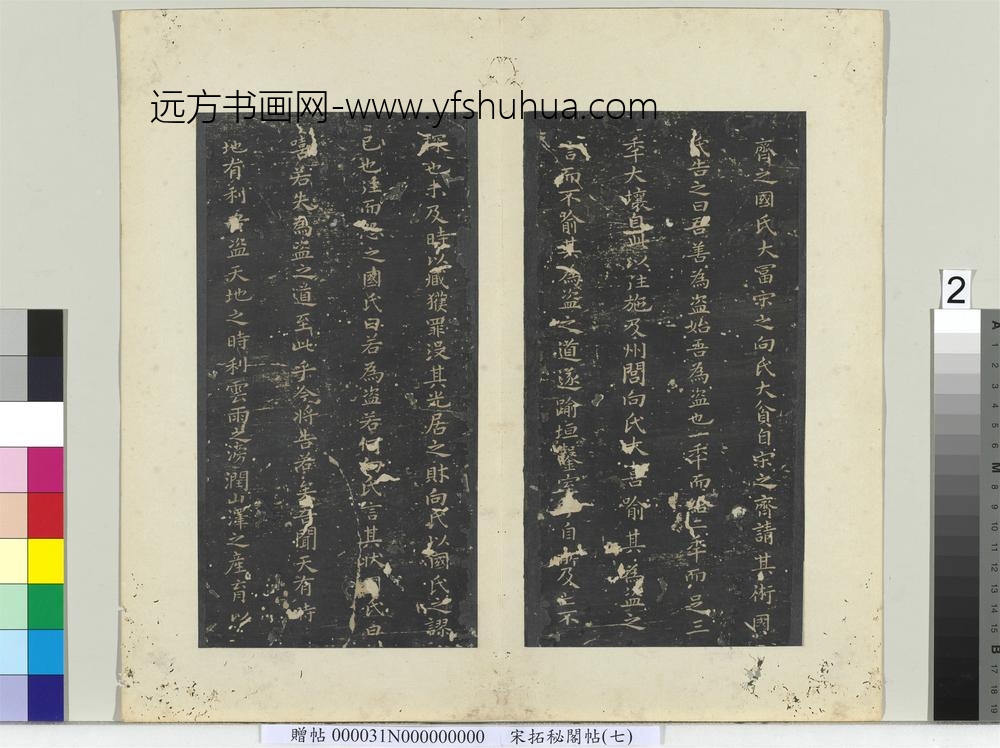 远方书画网-www.yfshuhua.com
齊之國氏大冨宋之向氏大貧自宋之齊請其術國
氏告之曰吾善為盗始吾為盗也一年而給二年而足三
年大壤自此以往施及州閭向氏大喜喻其為盗之
言而不喻其為盗之道遂踰垣鑿室手目所及亡不
探也未及時以贓獲罪没其先居之財向氏以國氏之謬
已也往而怨之國氏曰若為盗若何向氏言其狀國氏曰
嘻若失為盗之道至此乎今將告若矣吾聞天有時
地有利吾盗天地之時利雲雨之滂潤山澤之産育以
2
A 1 2 3 4 5 6 M 8 9 10 11 12 13 14 15 B 17 18 19
贈帖 000031N000000000 宋拓秘閣帖(七)